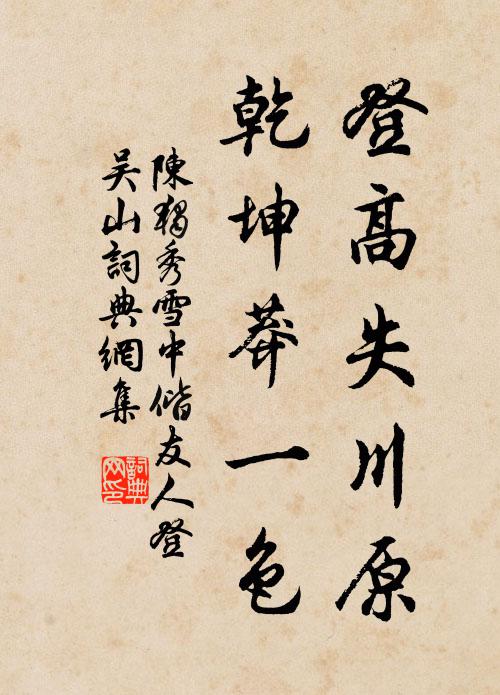 登高失川原
乾坤莽一色
陳独秀雪中偕友人登
吴山詞典網集
詞典
网印